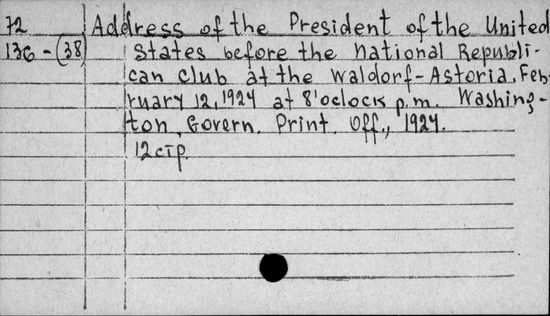 72 Address of the President of the United
136-(38) States before the National Republi-
can Club at the Waldorf-Astoria, Feb-
ruary 12, 1924 at 8'oclock p.m. Washing-
ton, Govern. Print. Off., 1924.
12 стр.